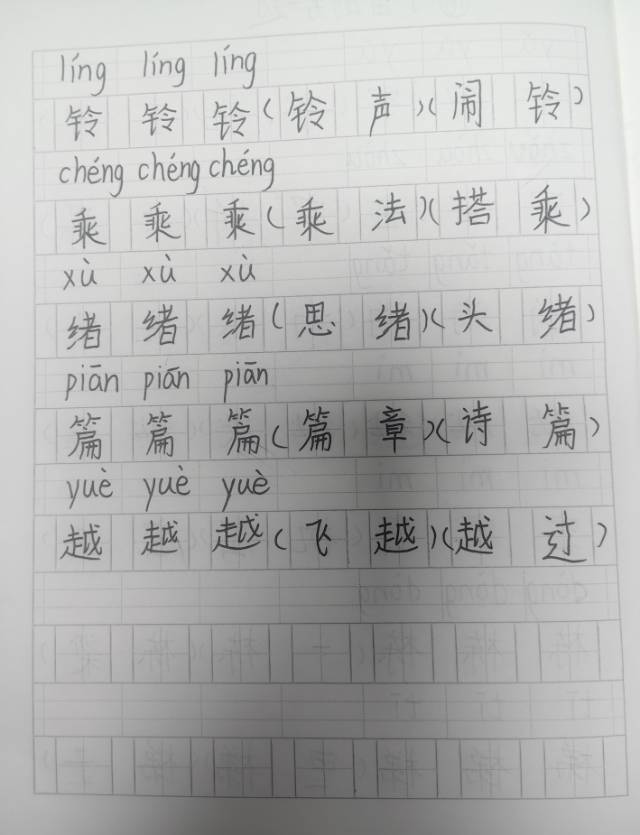 líng líng líng
铃 铃 铃(铃 声)(闹 铃)
chéng chéng chéng
乘 乘 乘(乘 法)(搭 乘)
xù xù xù
绪 绪 绪(思 绪)(头 绪)
piān piān piān
篇 篇 篇(篇 章)(诗 篇)
yuè yuè yuè
越 越 越(飞 越)(越 过)